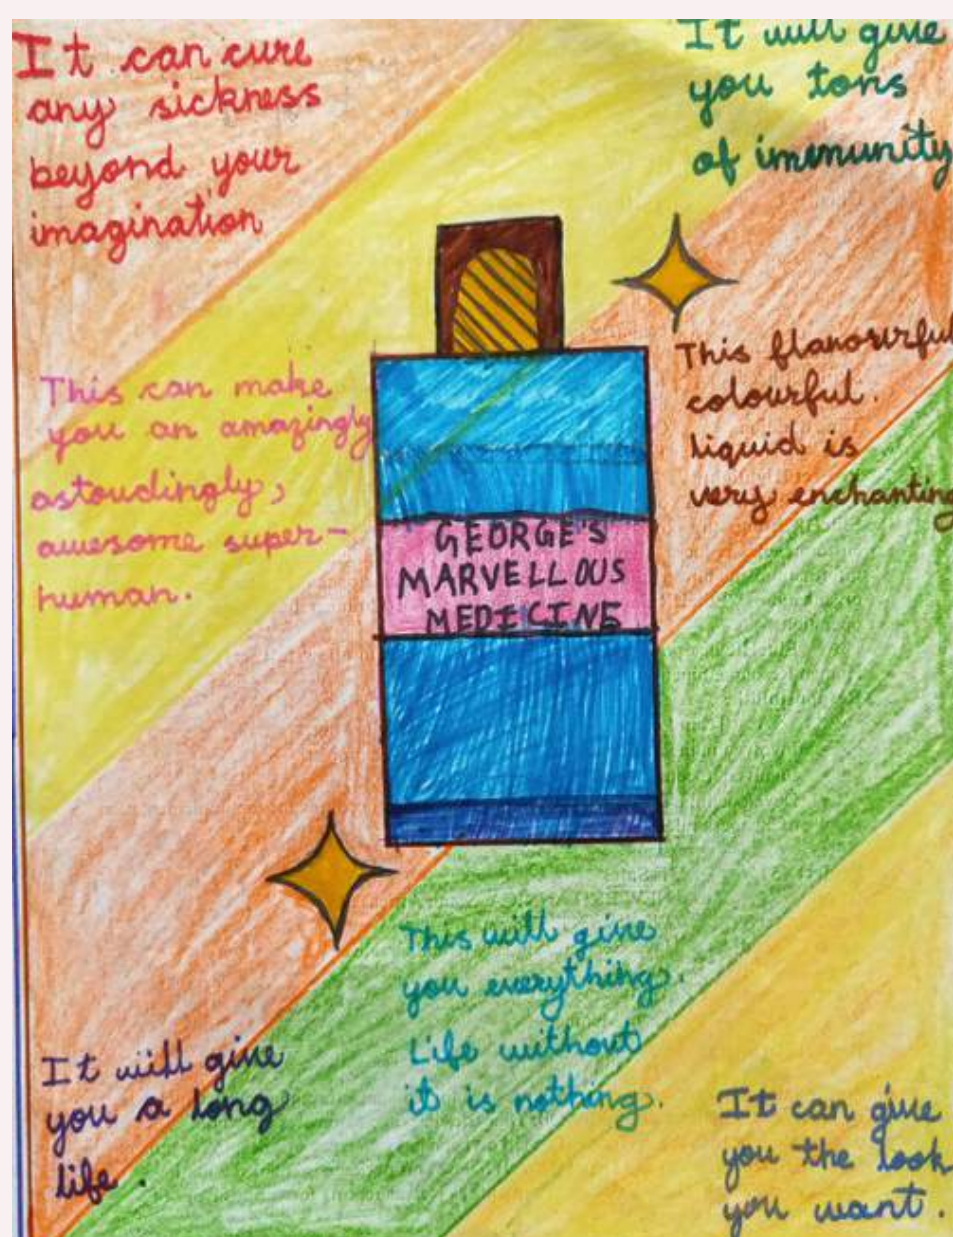 It can cure
any sickness
beyond your
imagination
It will give
you tons
of immunity
This can make
you an amazingly
astoudingly,
awesome super-
human.
This flavourful
colourful.
liquid is
very enchanting
GEORGE'S
MARVELLOUS
MEDICINE
This will give
you everything.
Life without
it is nothing.
It will give
you a long
life.
It can give
you the look
you want.